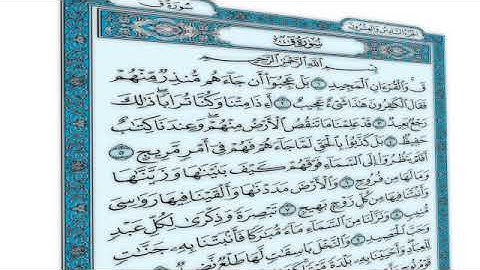 سُورَةُ قٓ
الجُزْءُ السَّادِسُ وَالعِشْرُونَ
سُورَةُ قٓ
بِسْمِ اللَّهِ الرَّحْمَٰنِ الرَّحِيمِ
قٓ وَالْقُرْءَانِ الْمَجِيدِ ١ بَلْ عَجِبُوٓا أَن جَآءَهُم مُّنذِرٌ مِّنْهُمْ
فَقَالَ الْكَٰفِرُونَ هَٰذَا شَىْءٌ عَجِيبٌ ٢ أَءِذَا مِتْنَا وَكُنَّا تُرَابًا ذَٰلِكَ
رَجْعٌۢ بَعِيدٌ ٣ قَدْ عَلِمْنَا مَا تَنقُصُ الْأَرْضُ مِنْهُمْ وَعِندَنَا كِتَٰبٌ
حَفِيظٌۢ ٤ بَلْ كَذَّبُوا بِالْحَقِّ لَمَّا جَآءَهُمْ فَهُمْ فِىٓ أَمْرٍ مَّرِيجٍ ٥
أَفَلَمْ يَنظُرُوٓا إِلَى السَّمَآءِ فَوْقَهُمْ كَيْفَ بَنَيْنَٰهَا وَزَيَّنَّٰهَا
وَمَا لَهَا مِن فُرُوجٍ ٦ وَالْأَرْضَ مَدَدْنَٰهَا وَأَلْقَيْنَا فِيهَا رَوَٰسِىَ
وَأَنۢبَتْنَا فِيهَا مِن كُلِّ زَوْجٍۭ بَهِيجٍ ٧ تَبْصِرَةً وَذِكْرَىٰ لِكُلِّ عَبْدٍ
مُّنِيبٍ ٨ وَنَزَّلْنَا مِنَ السَّمَآءِ مَآءً مُّبَٰرَكًا فَأَنۢبَتْنَا بِهِۦ جَنَّٰتٍ
وَحَبَّ الْحَصِيدِ ٩ وَالنَّخْلَ بَاسِقَٰتٍ لَّهَا طَلْعٌ نَّضِيدٌ ١٠
لِّلْعِبَادِ وَأَحْيَيْنَا بِهِۦ بَلْدَةً